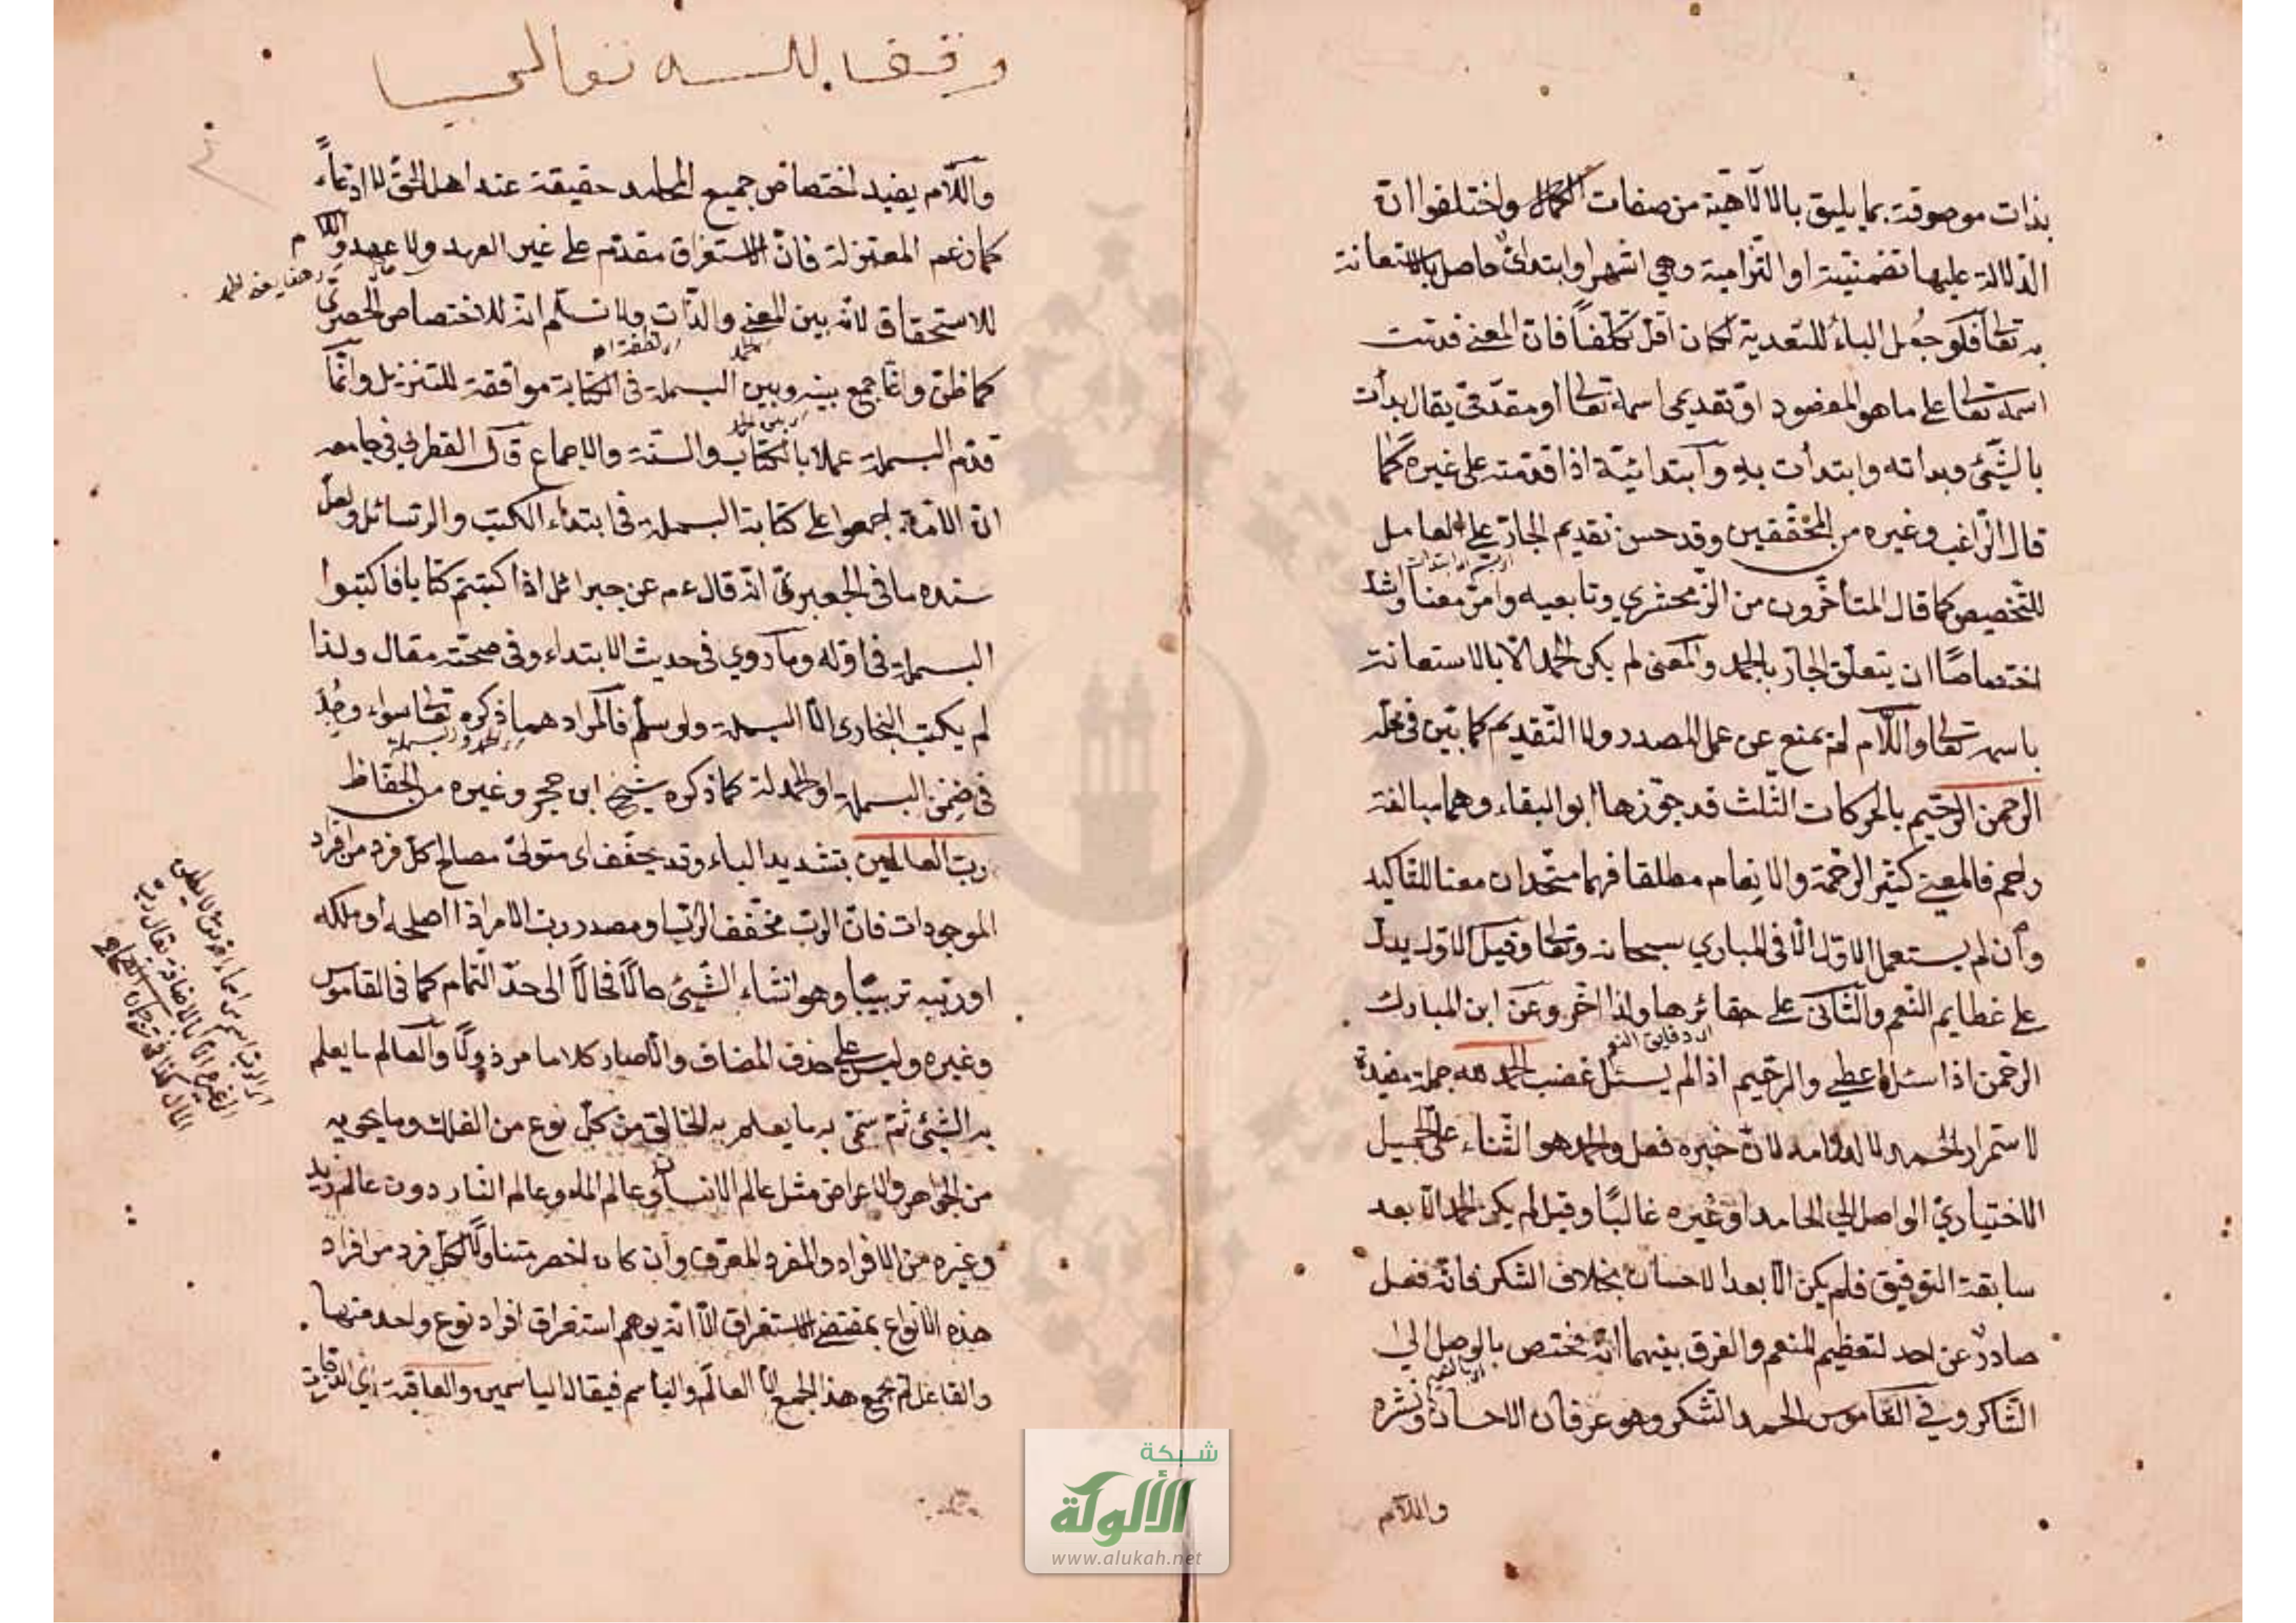 بذات موصوفة بما يليق بالالٓاهية من صفات الكمال واختلفوا ان
الدلالة عليها تضمنية او التزامية وهي اشهر او ابتدائ حاصل بالاستعانة
به تعالى فلو جعل الباء للتعدية لكان اقل تكلفاً فان المعنى قدمت
اسمه تعالى على ما هو المقصود او تقديمى اسمه تعالى او مقدمى يقال بدأت
بالشئ وبداته وابتدأت به وابتدائية اذا قدمته على غيره كما
قال الراغب وغيره من المحققين وقد حسن تقديم الجار على العامل
للتخصيص كما قال المتأخرون من الزمحشري وتابعيه وامن معنا واشد
اختصاصًا ان يتعلق الجار بالحمد والمعنى لم يكن الحمد الا بالاستعانة
باسمه تعالى واللام لم يمنع عن عمل المصدر ولا التقديم كما بين في محله
الرحمن الرحيم بالحركات الثلث قد جوزها ابو البقاء وهما مبالغة
راحم فالمعنى كثير الرحمة والانعام مطلقا فهما متحدان معنا للتاكيد
وان لم يستعمل الاول الا فى البارى سبحانه وتعالى وقيل الاول يدل
على عظايم النعم والثانى على حقائرها ولذا اخر وعن ابن المبارك
الرحمن اذا سئل اعطى والرحيم اذا لم يسئل غضب الحمد لله جملة مفيدة
لاستمرار الحمد لا لدوامه لان خبره فعل والحمد هو الثناء على الجميل
الاختياري الواصل الى الحامد او غيره غالبًا وقيل لم يكن الحمد الا بعد
سابقة التوفيق فلم يكن الا بعد الاحسان بخلاف الشكر فانه فعل
صادر عن احد لتعظيم المنعم والفرق بينهما انه مختص بالوصل الى
الشاكر وفي القاموس الحمد الشكر وهو عرفان الاحسان ونشره
واللام
وقف لله تعالى
واللام يفيد اختصاص جميع المحامد حقيقة عند اهل الحق لا ادعاءً
كما زعم المعتزلة فان الاستغراق مقدم على غير العهد ولا عهد واللام
للاستحقاق لانه بين المعنى والذات ولا نسلم انه للاختصاص الحصرى
كما ظن وانما جمع بينه وبين البسملة فى الكتابة موافقة للتنزيل وانما
قدم البسملة عملا بالكتاب والسنة والاجماع قال القطربي في جامعه
ان الامة اجمعوا على كتابة البسملة فى ابتداء الكتب والرسائل ولعل
سنده ما فى الجعبرى انه قال عم عن جبرائل اذا كتبتم كتابا فاكتبوا
البسملة فى اوله وما روي فى حديث الابتداء وفى صحته مقال ولذا
لم يكتب البخارى الا البسملة ولو سلم فالمراد هما ذكره تعالى سواء وجد
فى ضمن البسملة او الحمدلة كما ذكره شيخ ابن حجر وغيره من الحفاظ
رب العالمين بتشديد الباء وقد يخفف اى متولى مصالح كل فرد من افراد
الموجودات فان الرب مخفف الراب او مصدر رب الامر اذا اصلحه او ملكه
او ربيه تربيبًا وهو انشاء الشئ حالًا فحالًا الى حد التمام كما فى القاموس
وغيره وليس على حذف المضاف والا صار كلاما مرذولًا والعالم ما يعلم
به الشئ ثم سمى به ما يعلم به الخالق من كل نوع من الفلك وما يحويه
من الجواهر والاعراض مثل عالم الانسان وعالم الماء وعالم النار دون عالم زيد
وغيره من الافراد والمفرد المعرف وان كان اخصر متناولًا لكل فرد من افراد
هذه الانواع بمقتضى الاستغراق الا انه يوهم استغراق افراد نوع واحد منها
والفاعل لم يجمع هذا الجمع الا العالم والياسم فيقال الياسمين والعاقبة اى
شبكة
الألوكة
www.alukah.net